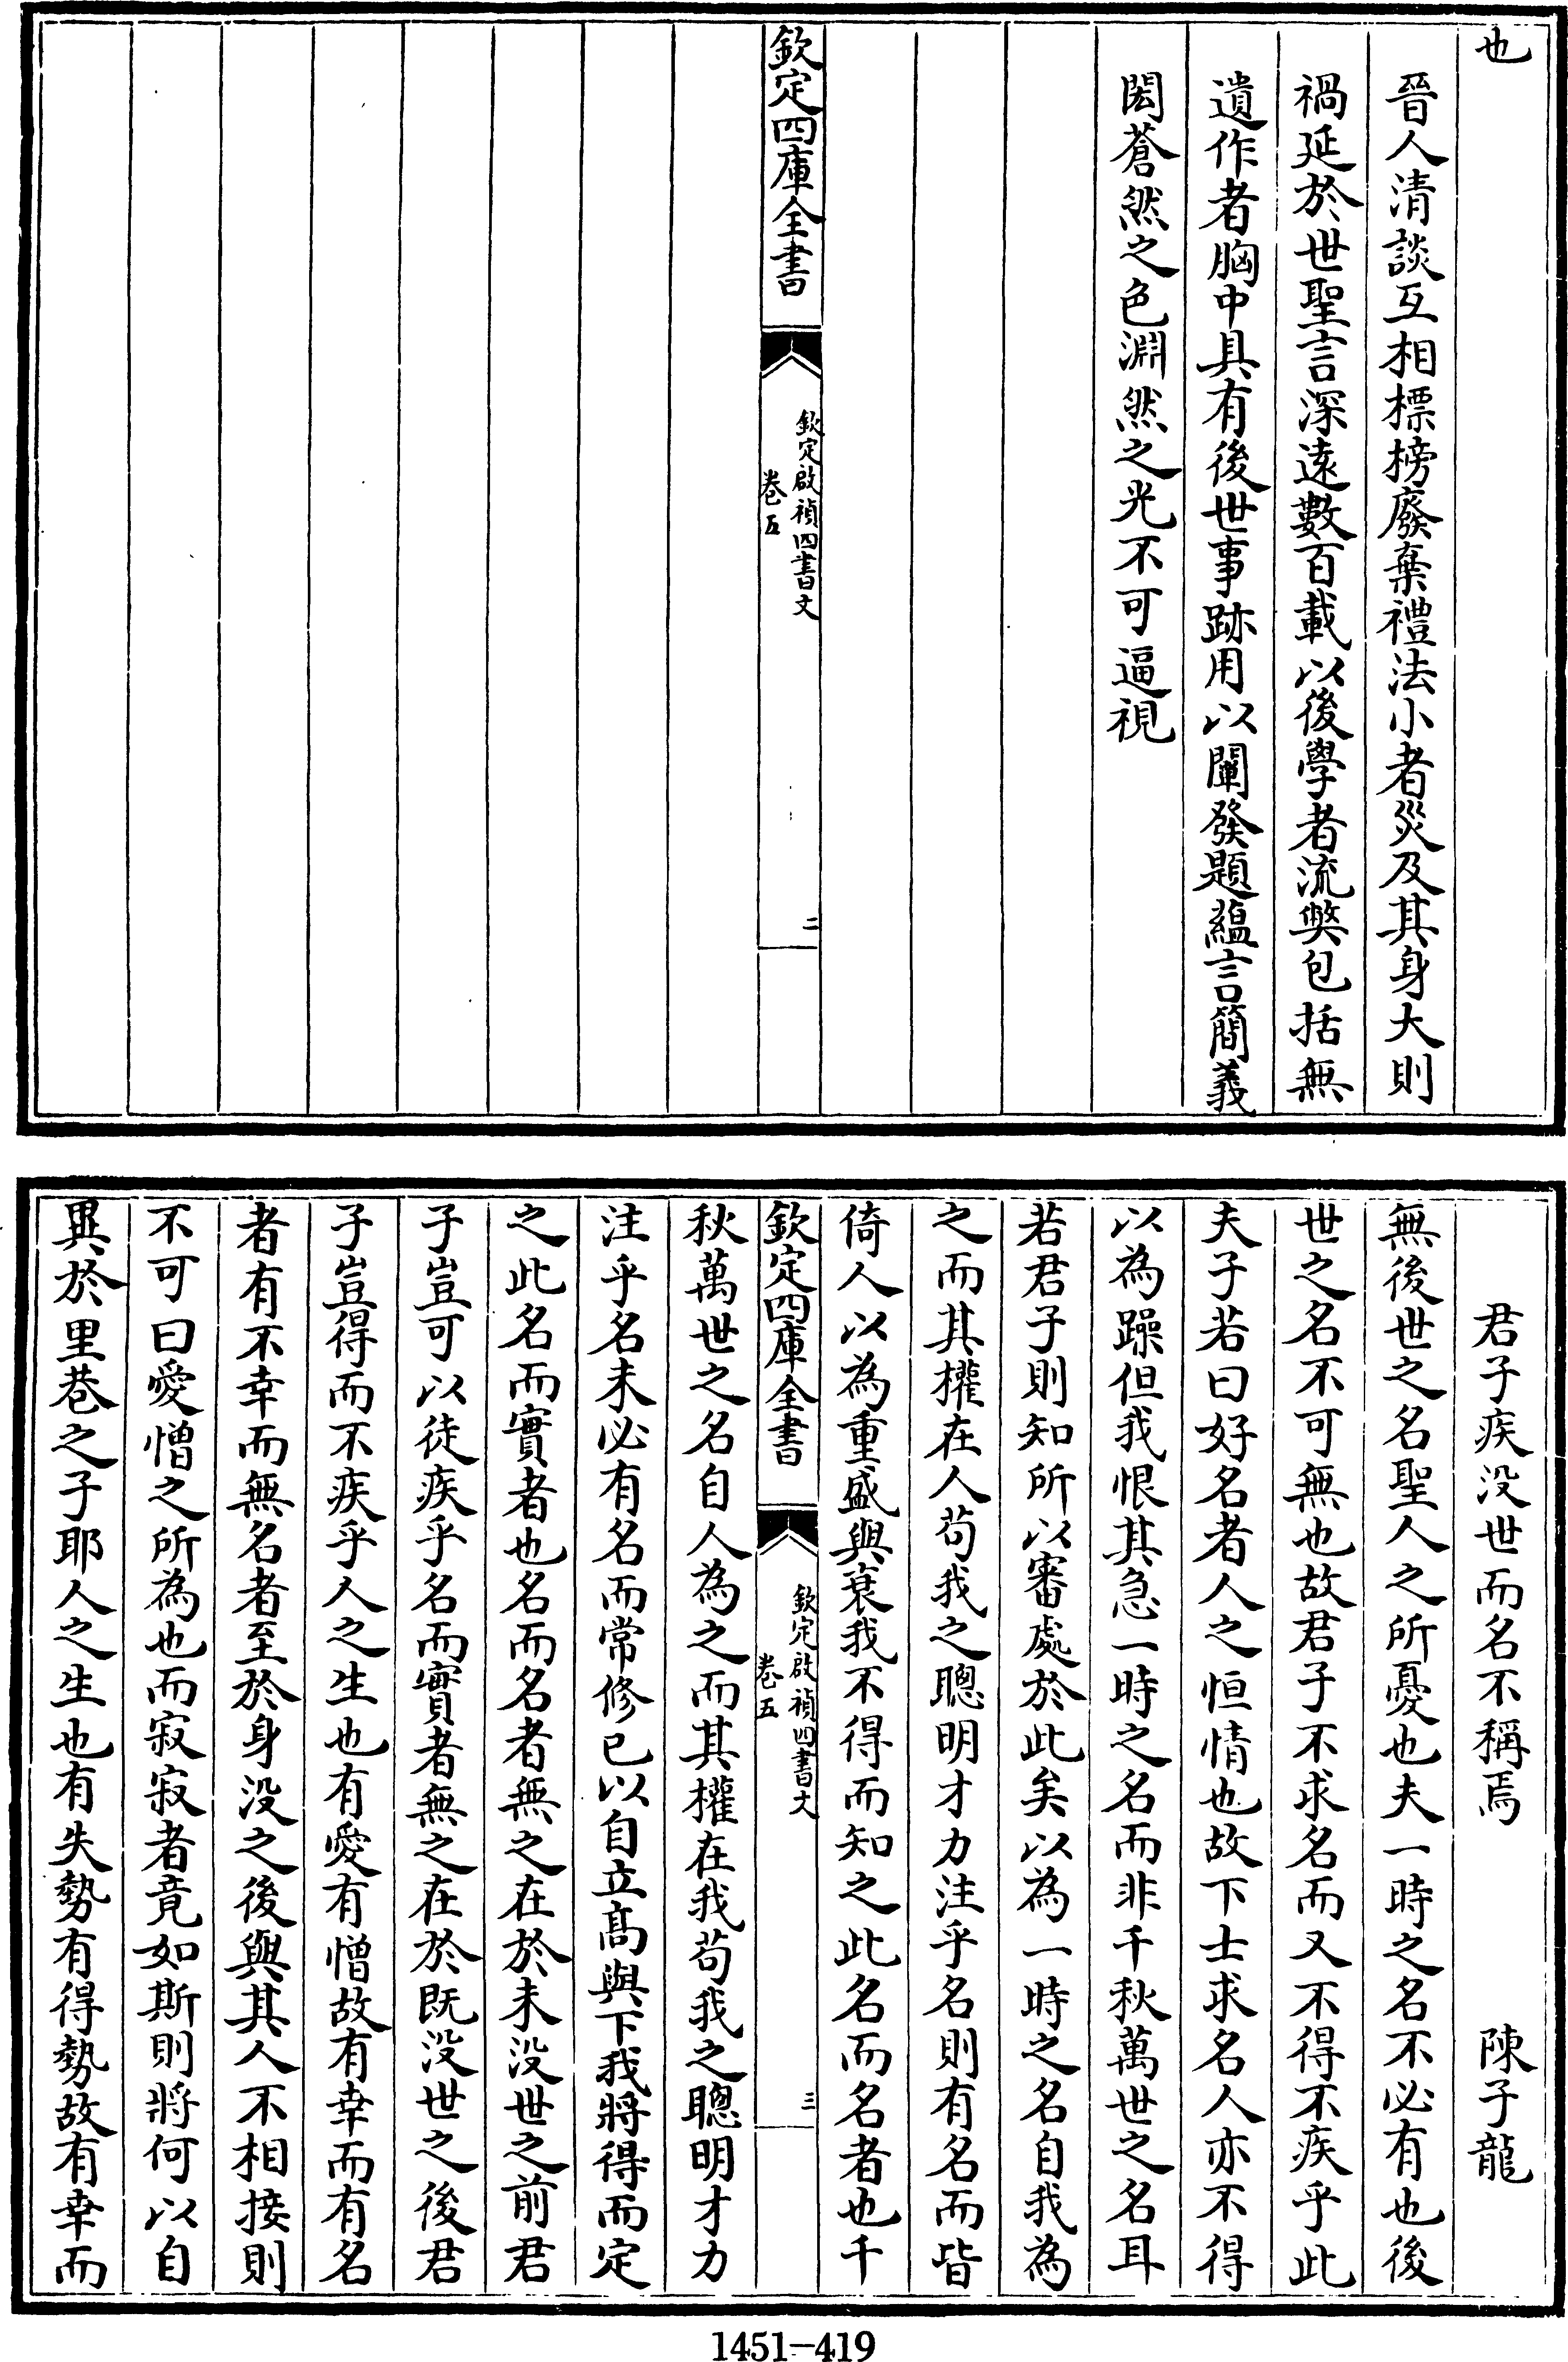 也
晉人清談互相標榜廢棄禮法小者災及其身大則
禍延於世聖言深遠數百載以後學者流弊包括無
遺作者胸中具有後世事跡用以闡發題蘊言簡義
閎蒼然之色淵然之光不可逼視
欽定四庫全書
欽定啟禎四書文
卷五
二
君子疾没世而名不稱焉 陳子龍
無後世之名聖人之所憂也夫一時之名不必有也後
世之名不可無也故君子不求名而又不得不疾乎此
夫子若曰好名者人之恒情也故下士求名人亦不得
以為躁但我恨其急一時之名而非千秋萬世之名耳
若君子則知所以審處於此矣以為一時之名自我為
之而其權在人苟我之聰明才力注乎名則有名而皆
倚人以為重盛與衰我不得而知之此名而名者也千
欽定四庫全書
欽定啟禎四書文
卷五
三
秋萬世之名自人為之而其權在我苟我之聰明才力
注乎名未必有名而常修已以自立髙與下我將得而定
之此名而實者也名而名者無之在於未没世之前君
子豈可以徒疾乎名而實者無之在於既没世之後君
子豈得而不疾乎人之生也有愛有憎故有幸而有名
者有不幸而無名者至於身没之後與其人不相接則
不可曰愛憎之所為也而寂寂者竟如斯則將何以自
異於里巷之子耶人之生也有失勢有得勢故有幸而
1451-419